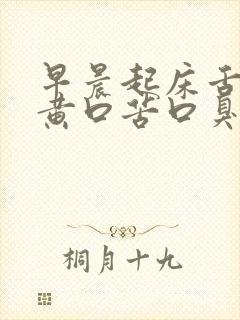 早晨起床舌
黄口苦口臭
桐月十九